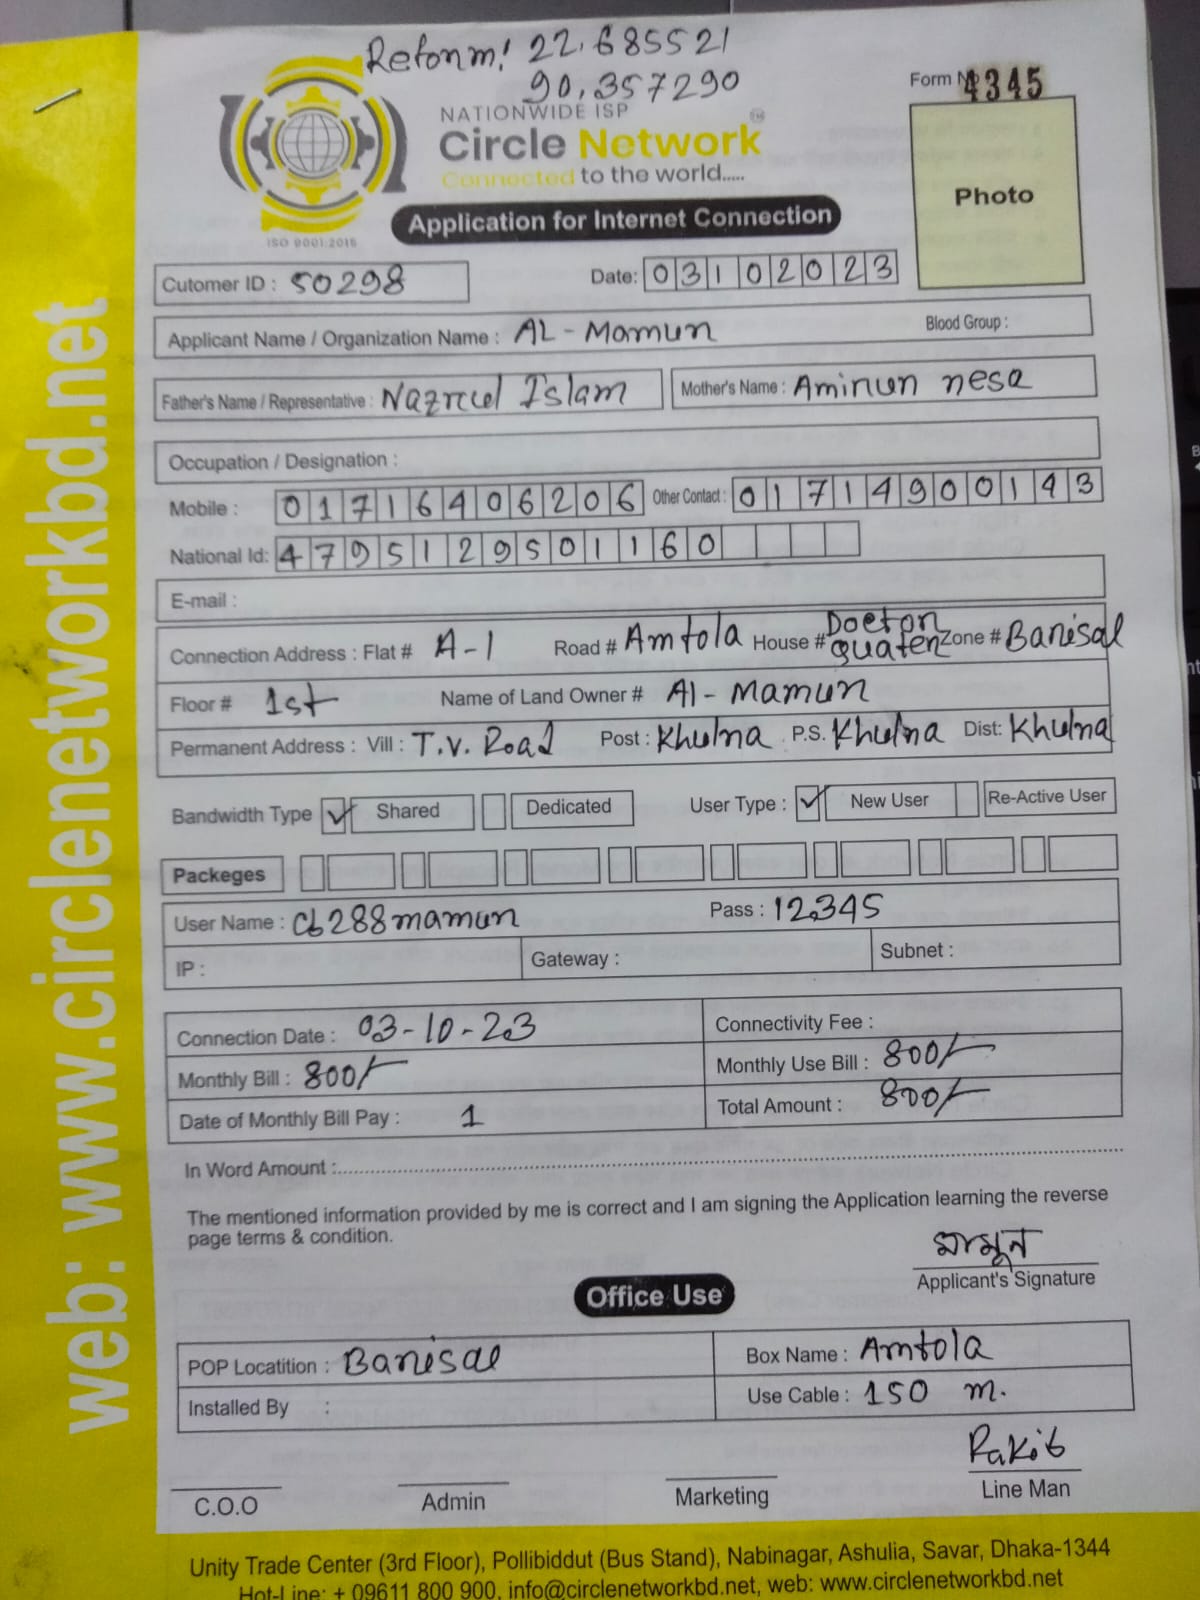 Reform! 22.685521
90.357290
NATIONWIDE ISP
Circle Network
Connected to the world.....
ISO 9001:2015
Form No 4345
Photo
Application for Internet Connection
Cutomer ID : 50298 Date: 03102023
Applicant Name / Organization Name : AL - Mamun Blood Group :
Father's Name / Representative : Nazrul Islam Mother's Name : Aminun nesa
Occupation / Designation :
Mobile : 01716406206 Other Contact : 01714900143
National Id: 4795129501160
E-mail :
Connection Address : Flat # A-1 Road # Amtola House # Doctor quater Zone # Barisal
Floor # 1st Name of Land Owner # Al - Mamun
Permanent Address : Vill : T.V. Road Post : Khulna P.S. Khulna Dist: Khulna
Bandwidth Type ✓ Shared Dedicated User Type : ✓ New User Re-Active User
Packeges
User Name : Cb288mamun Pass : 12345
IP : Gateway : Subnet :
Connection Date : 03-10-23 Connectivity Fee :
Monthly Bill : 800/- Monthly Use Bill : 800/-
Date of Monthly Bill Pay : 1 Total Amount : 800/-
In Word Amount :
The mentioned information provided by me is correct and I am signing the Application learning the reverse
page terms & condition.
মামুন
Applicant's Signature
Office Use
POP Locatition : Barisal Box Name : Amtola
Installed By : Use Cable : 150 m.
Rakib
C.O.O Admin Marketing Line Man
Unity Trade Center (3rd Floor), Pollibiddut (Bus Stand), Nabinagar, Ashulia, Savar, Dhaka-1344
Hot-Line: + 09611 800 900, info@circlenetworkbd.net, web: www.circlenetworkbd.net
web: www.circlenetworkbd.net